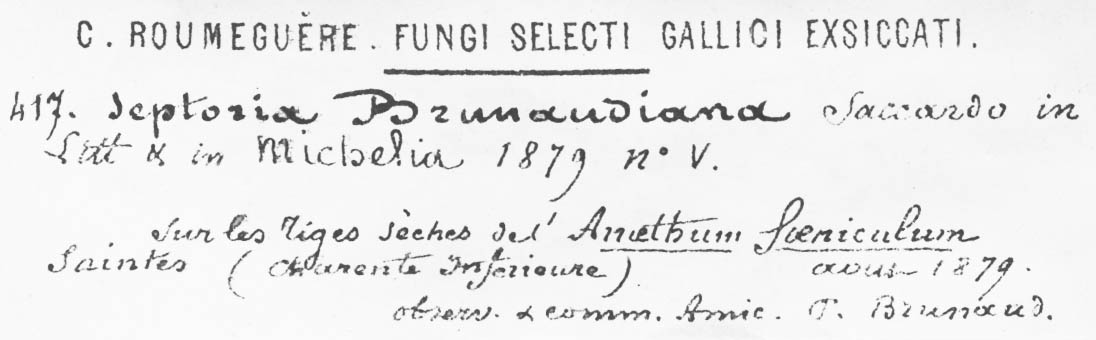 C. ROUMEGUĚRE. FUNGI SELECTI GALLICI EXSICCATI.
417. Septoria Brunaudiana Saccardo in
Litt & in Michelia 1879 n° V.
Sur les Tiges sèches de l' Anœthum Fœniculum
Saintes (Charente Inférieure) aout 1879.
observ. & comm. Amic. P. Brunaud.